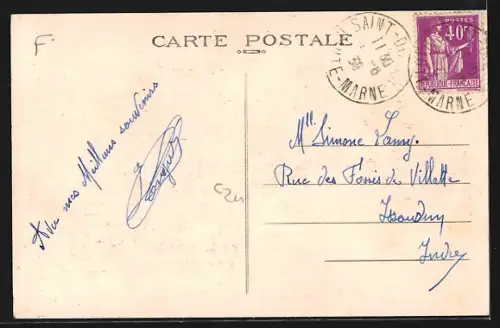 F
CARTE POSTALE
SAINT-DI
11 30
38
TE-MARNE
POSTES
40c
REPUBLIQUE FRANÇAISE
MARNE
Avec mes Meilleurs souvenirs
Mlle Simone Lamy.
Rue des Fonds de Villatte
Issoudun
Indre